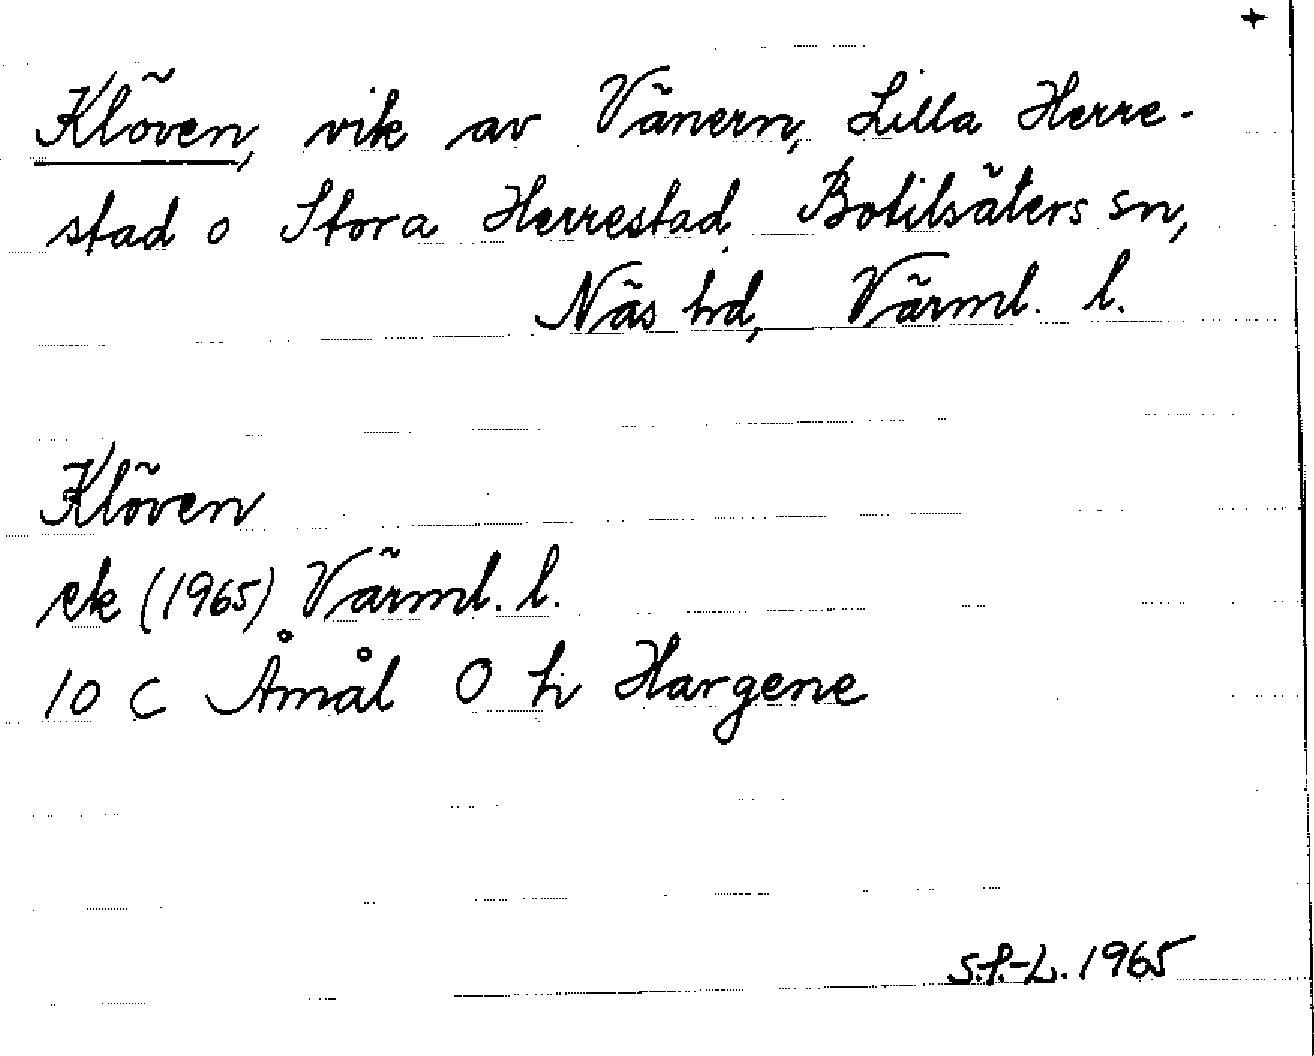 +
Klöven, vik av Vänern, Lilla Herre-
stad o Stora Herrestad, Botilsäters sn,
Näs hd, Värml. l.
Klöven
ek (1965) Värml. l.
10 C Åmål O h Hargene
S.P.-L. 1965